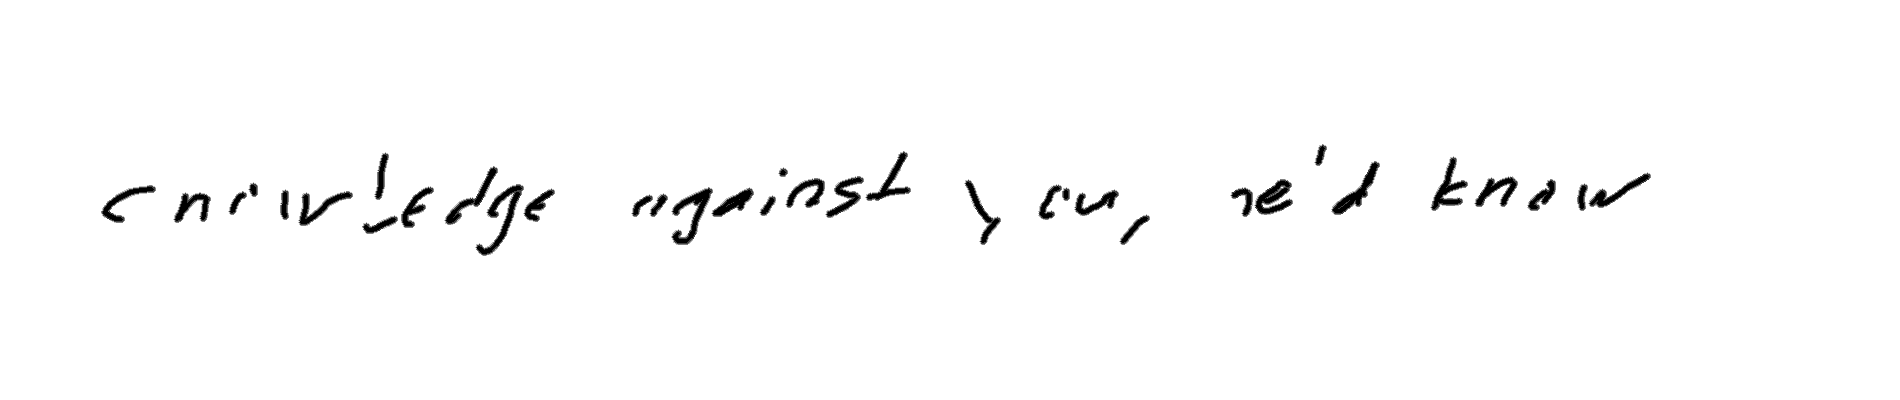 knowledge against you, he'd know